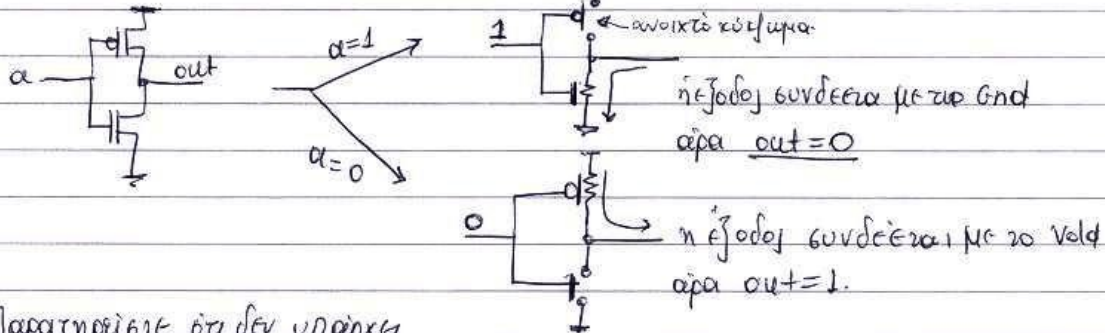 a out
a=1
1 ανοιχτό κύκλωμα.
η έξοδος συνδεεται με την Gnd
άρα out=0
a=0
0 η έξοδος συνδέεται με το Vdd
άρα out=1.
Παρατηρείστε ότι δεν υπάρχει